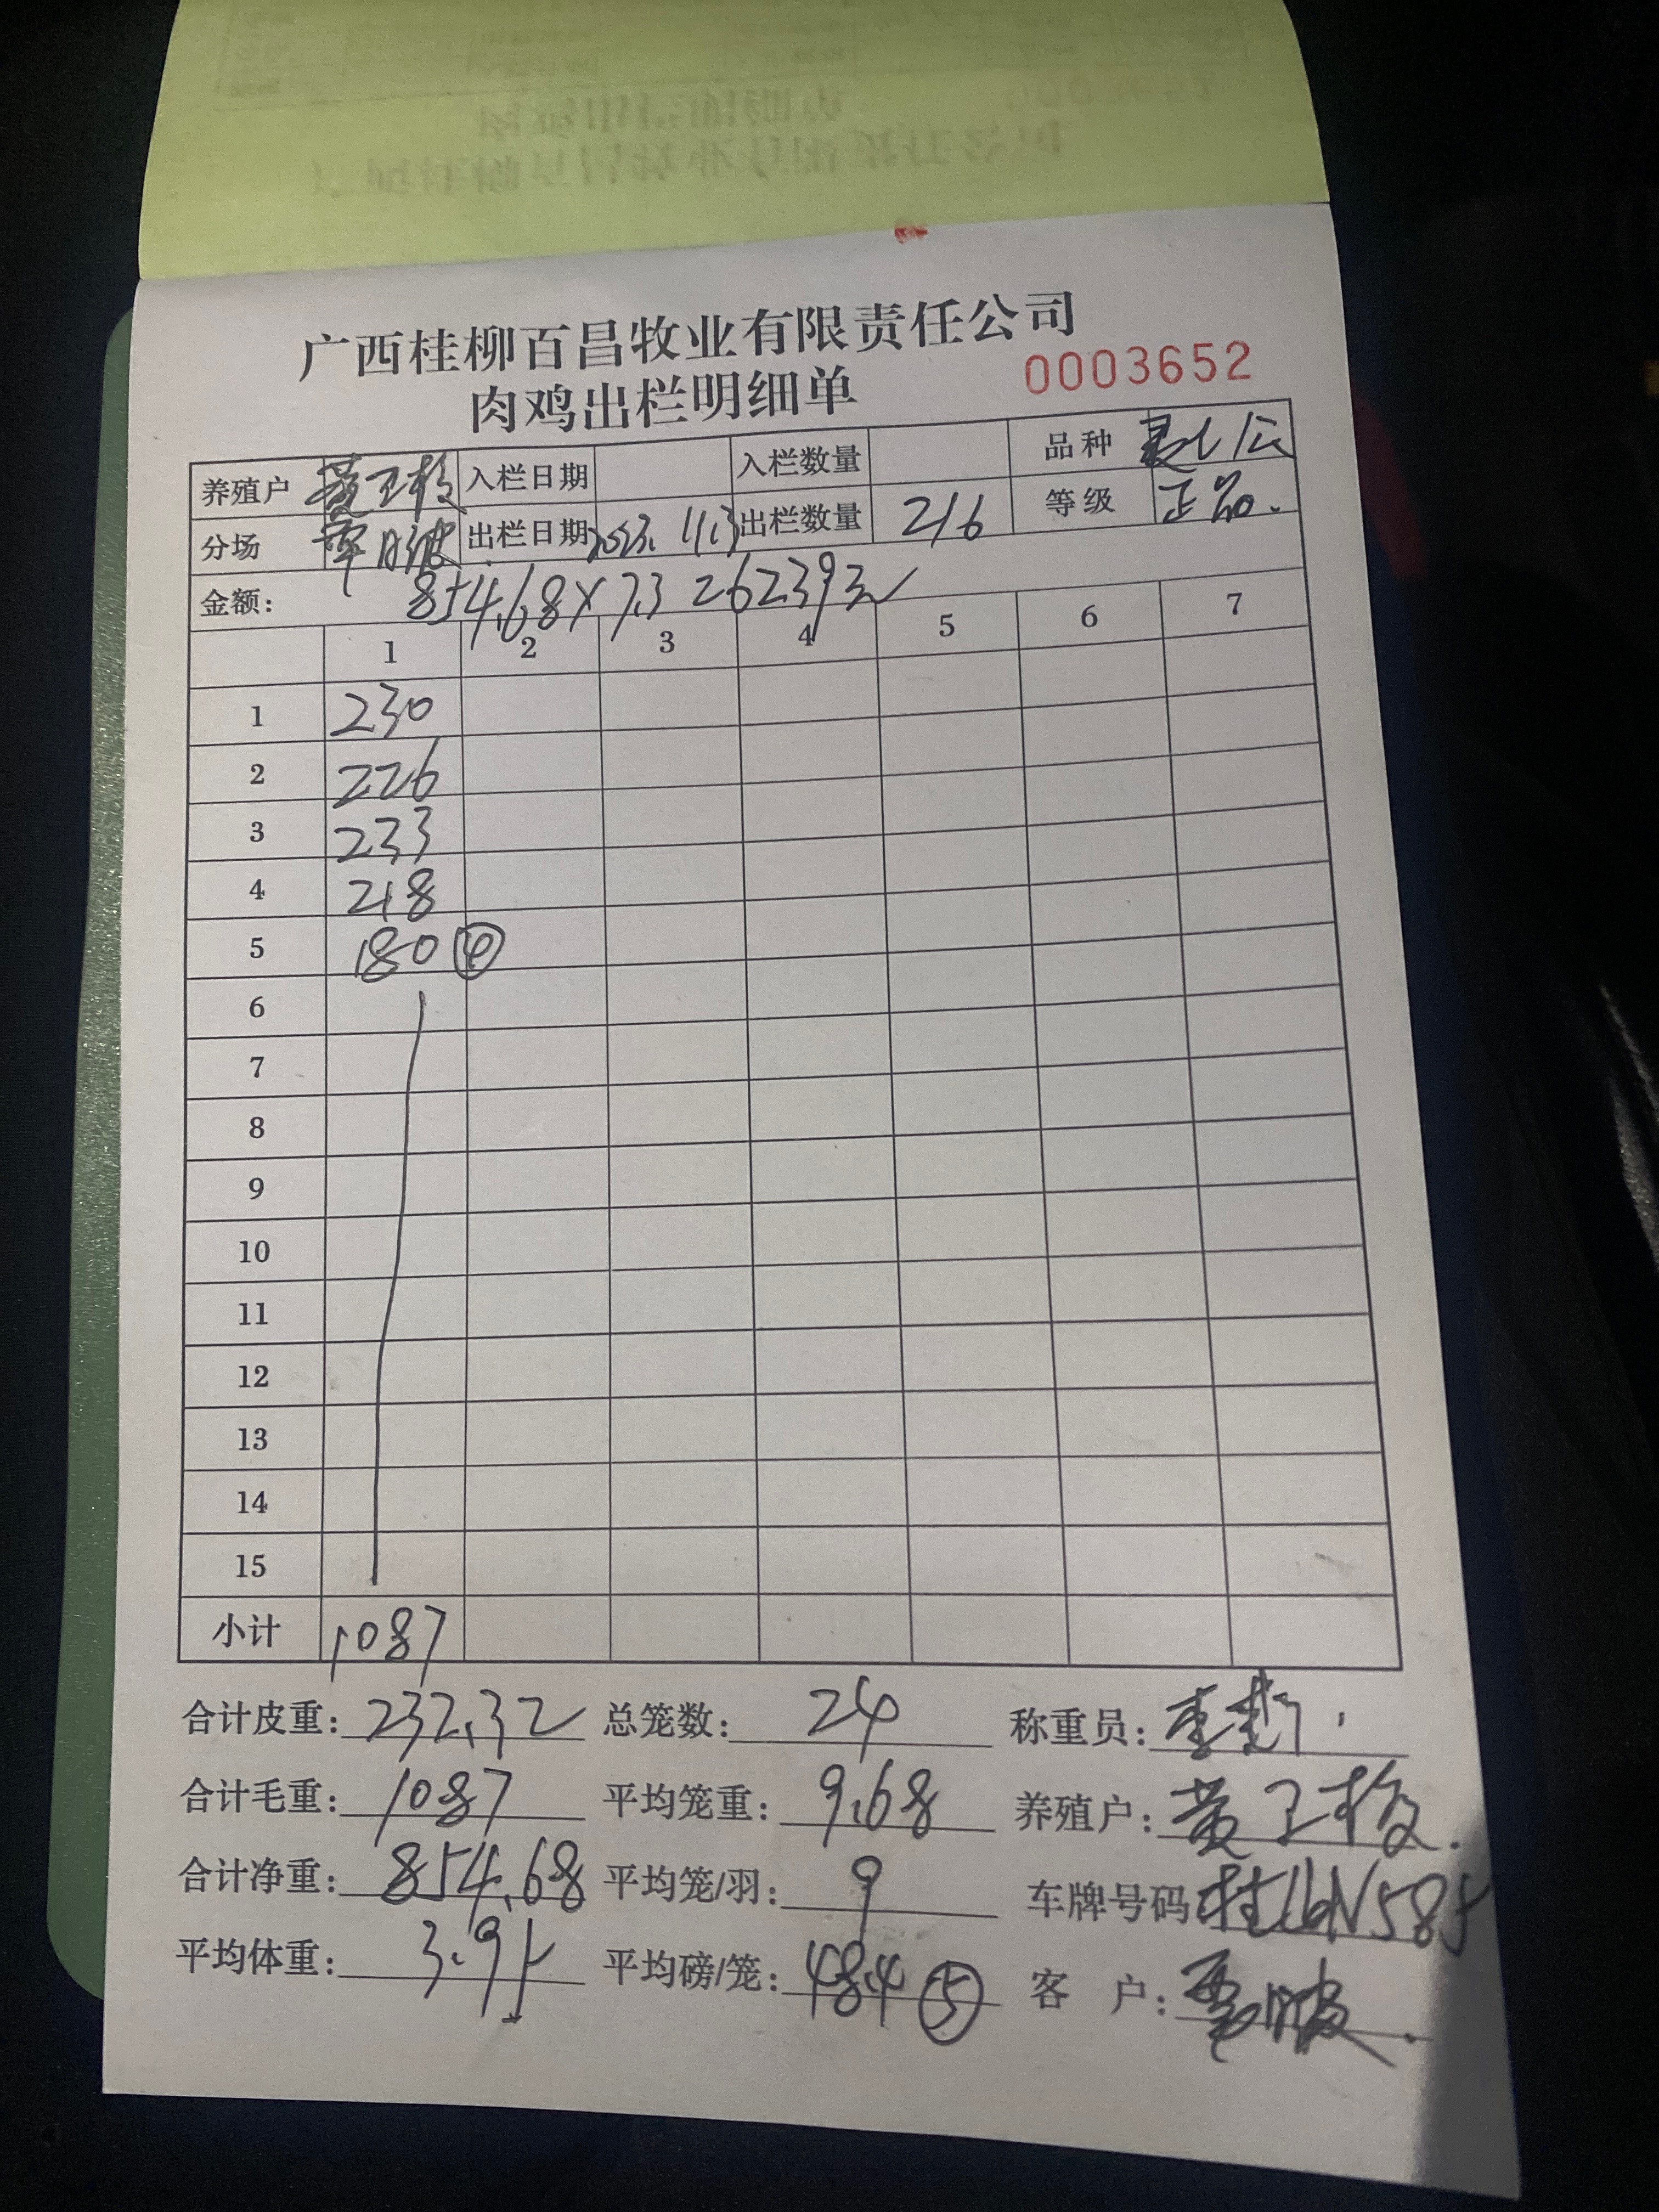 广西桂柳百昌牧业有限责任公司
肉鸡出栏明细单 0003652
养殖户 入栏日期 入栏数量 品种
分场 出栏日期 2023.11.3 出栏数量 216 等级 正品.
金额: 854.68×7.3 262393
1 2 3 4 5 6 7
1 230
2 226
3 233
4 218
5 180 ④
6
7
8
9
10
11
12
13
14
15
小计 1087
合计皮重: 232.32 总笼数: 24 称重员:
合计毛重: 1087 平均笼重: 9.68 养殖户: 黄
合计净重: 854.68 平均笼/羽: 9 车牌号码
平均体重: 3.95 平均磅/笼: 484 ⑤ 客 户: